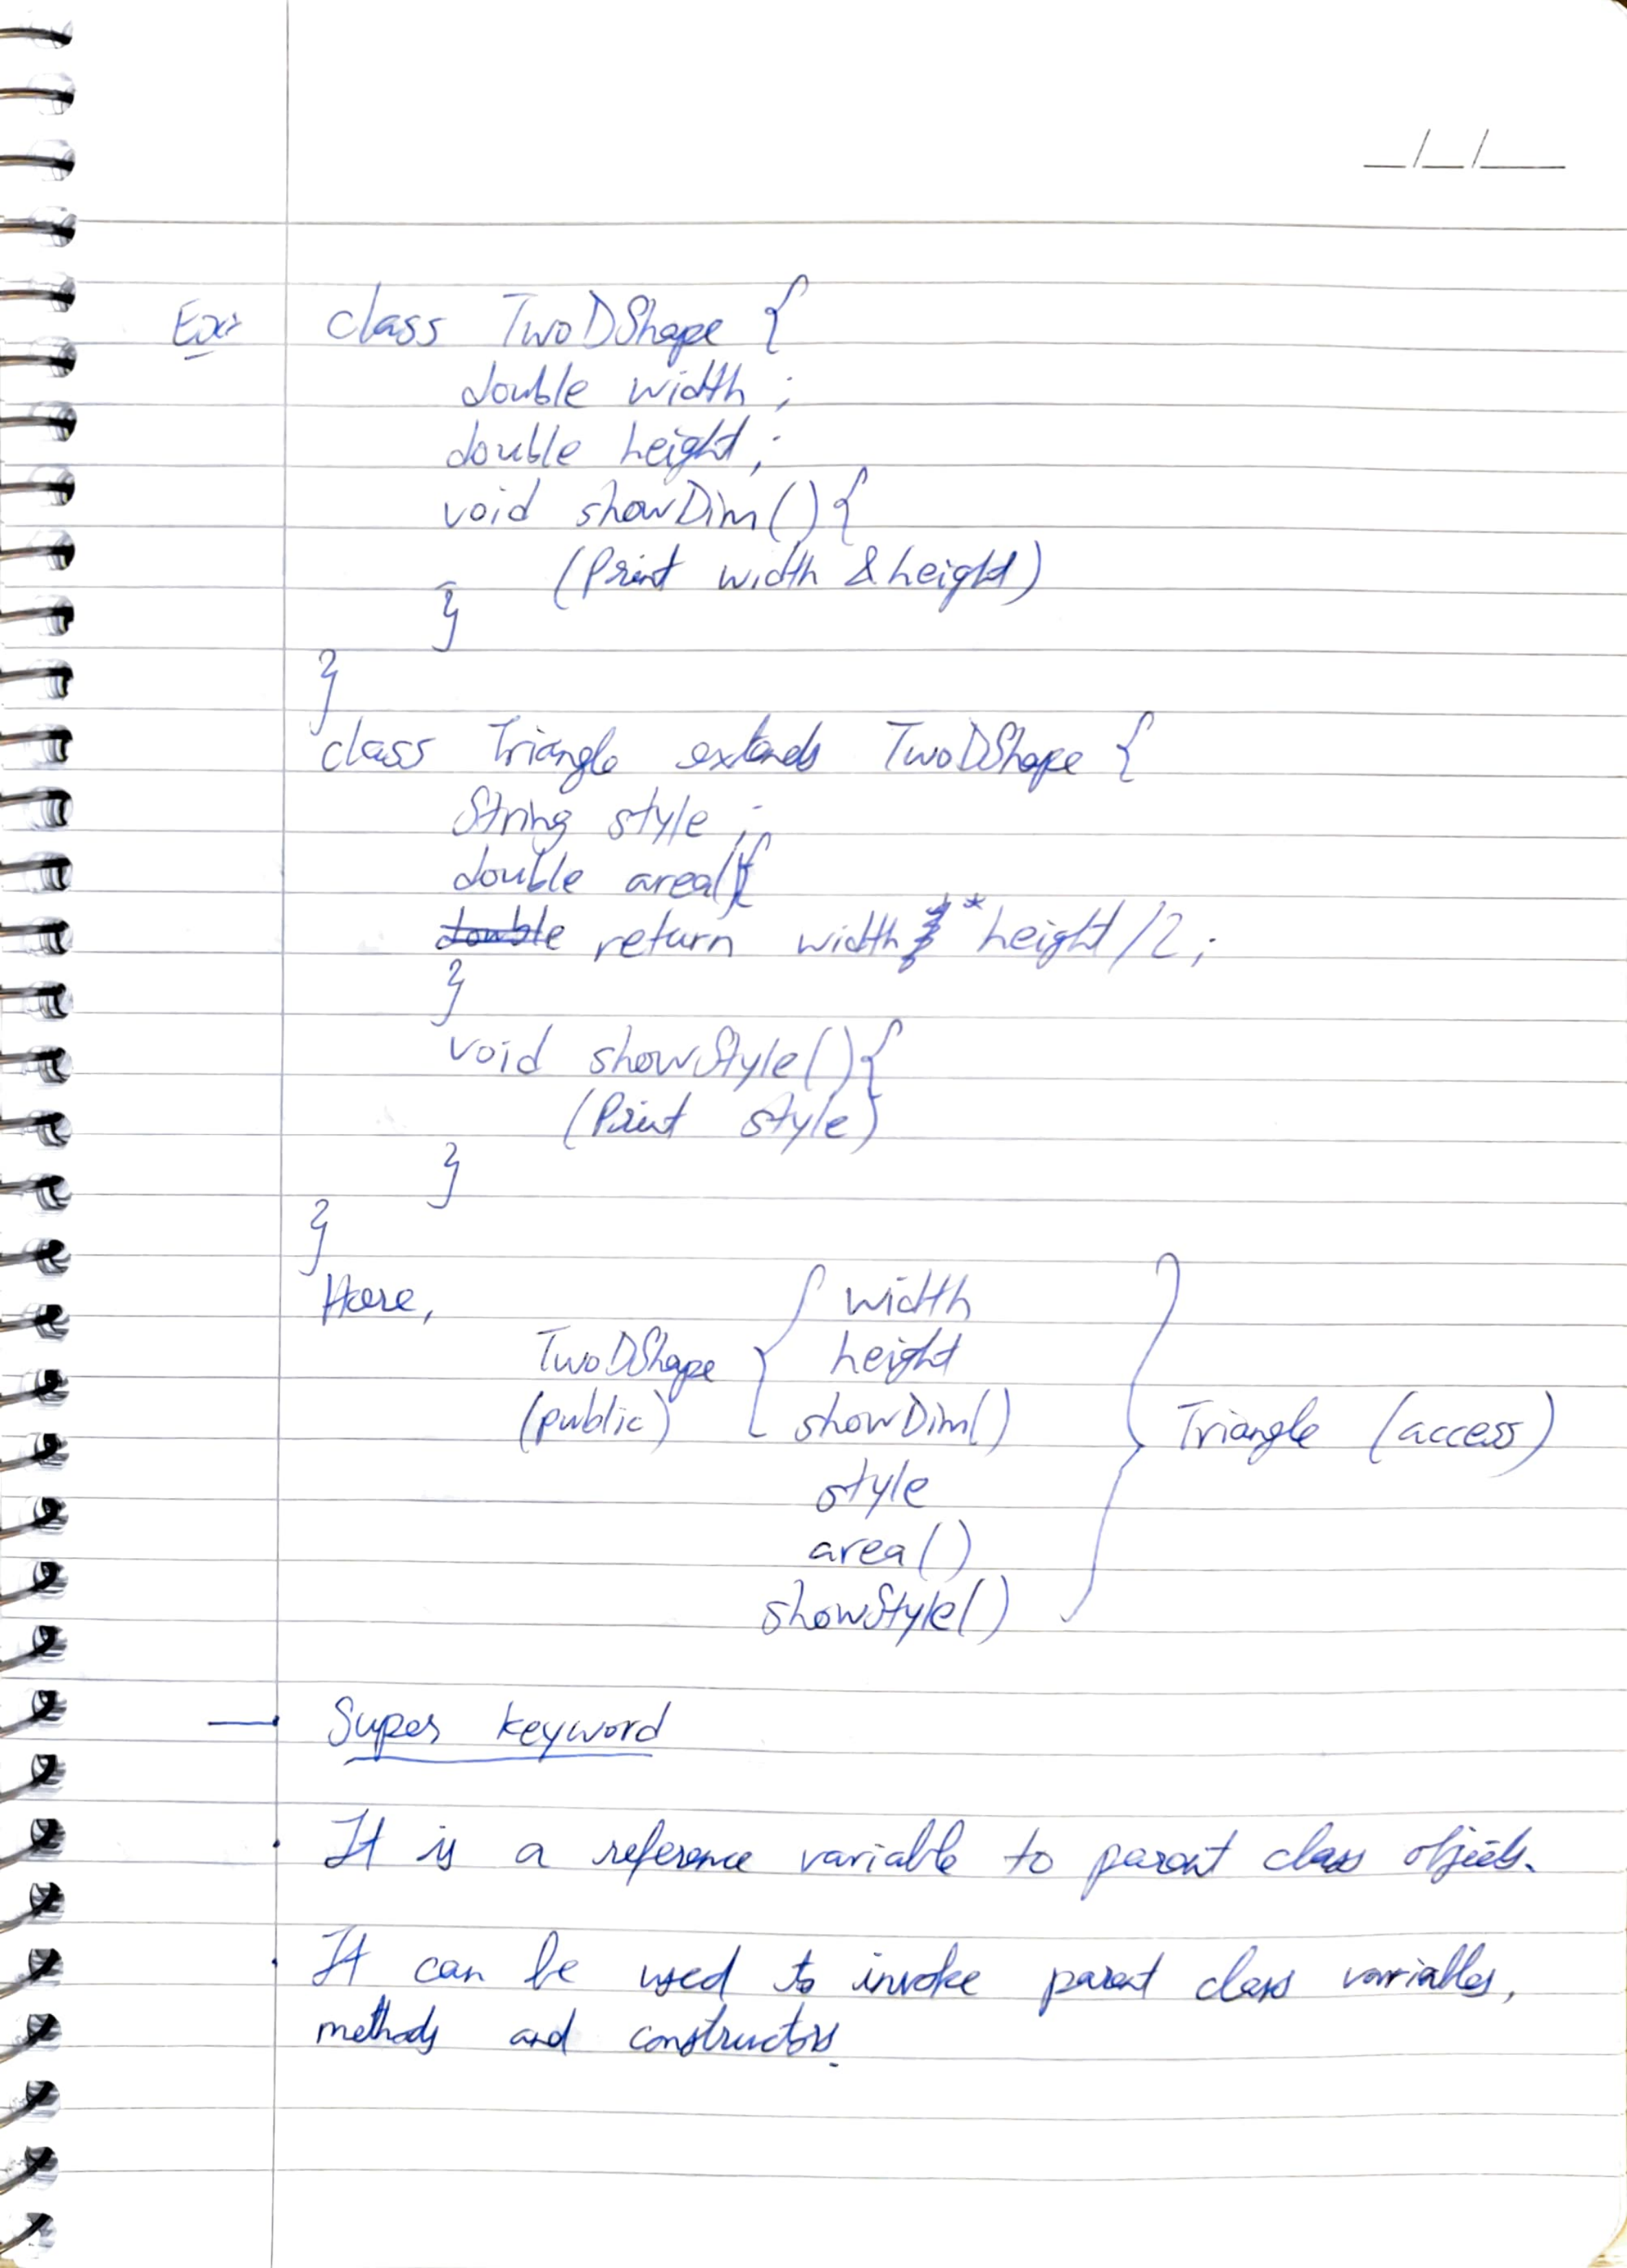 __/__/____
Ex: class TwoDShape {
double width ;
double height ;
void showDim() {
(Print width & height)
}
}
class Triangle extends TwoDShape {
String style ;
double area() {
double return width * height / 2 ;
}
void showStyle() {
(Print style)
}
}
Here,
TwoDShape (public) { width
height
showDim()
style
area()
showStyle() } Triangle (access)
— Super keyword
. It is a reference variable to parent class objects.
. It can be used to invoke parent class variables,
methods and constructors.